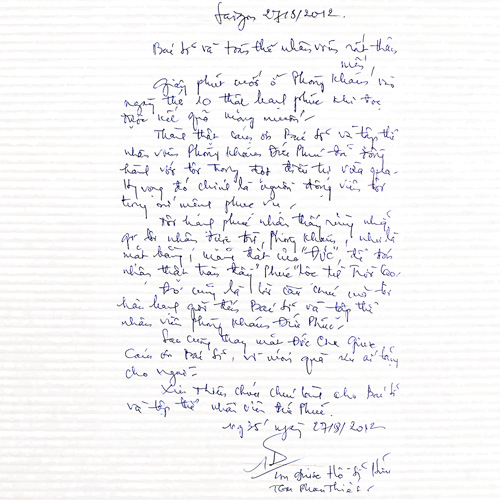 Saigon 27/8/2012.
Bác sĩ và toàn thể nhân viên rất thân
mến,
Giây phút cuối ở Phòng Khám vào
ngày thứ 10 thật hạnh phúc khi đọc
được kết quả mong muốn!
Thành thật cám ơn Bác sĩ và tập thể
nhân viên Phòng Khám Đức Phúc đã đồng
hành với tôi trong đợt điều trị vừa qua.
Hy vọng đó chính là "người động viên tôi
trong sứ mệnh phục vụ".
Tôi hạnh phúc nhận thấy rằng những
gì tôi nhận được từ Phòng Khám, như là
mặt bằng, mang thật của "ĐỨC", để đón
nhận thật tràn đầy "Phúc" Lộc từ Trời Cao.
Đó cũng là lời cầu chúc mà tôi
hân hạnh gởi đến Bác Sĩ và tập thể
nhân viên Phòng Khám Đức Phúc.
Sau cùng thay mặt Đức Cha Giuse
Cám ơn Bác Sĩ, vì món quà
cho người.
Xin Thiên Chúa chúc lành cho Bác Sĩ
và tập thể nhân viên Đức Phúc.
ngày 27/8/2012
Lm Giuse Hồ Sĩ Hữu
TGM Phan Thiết.